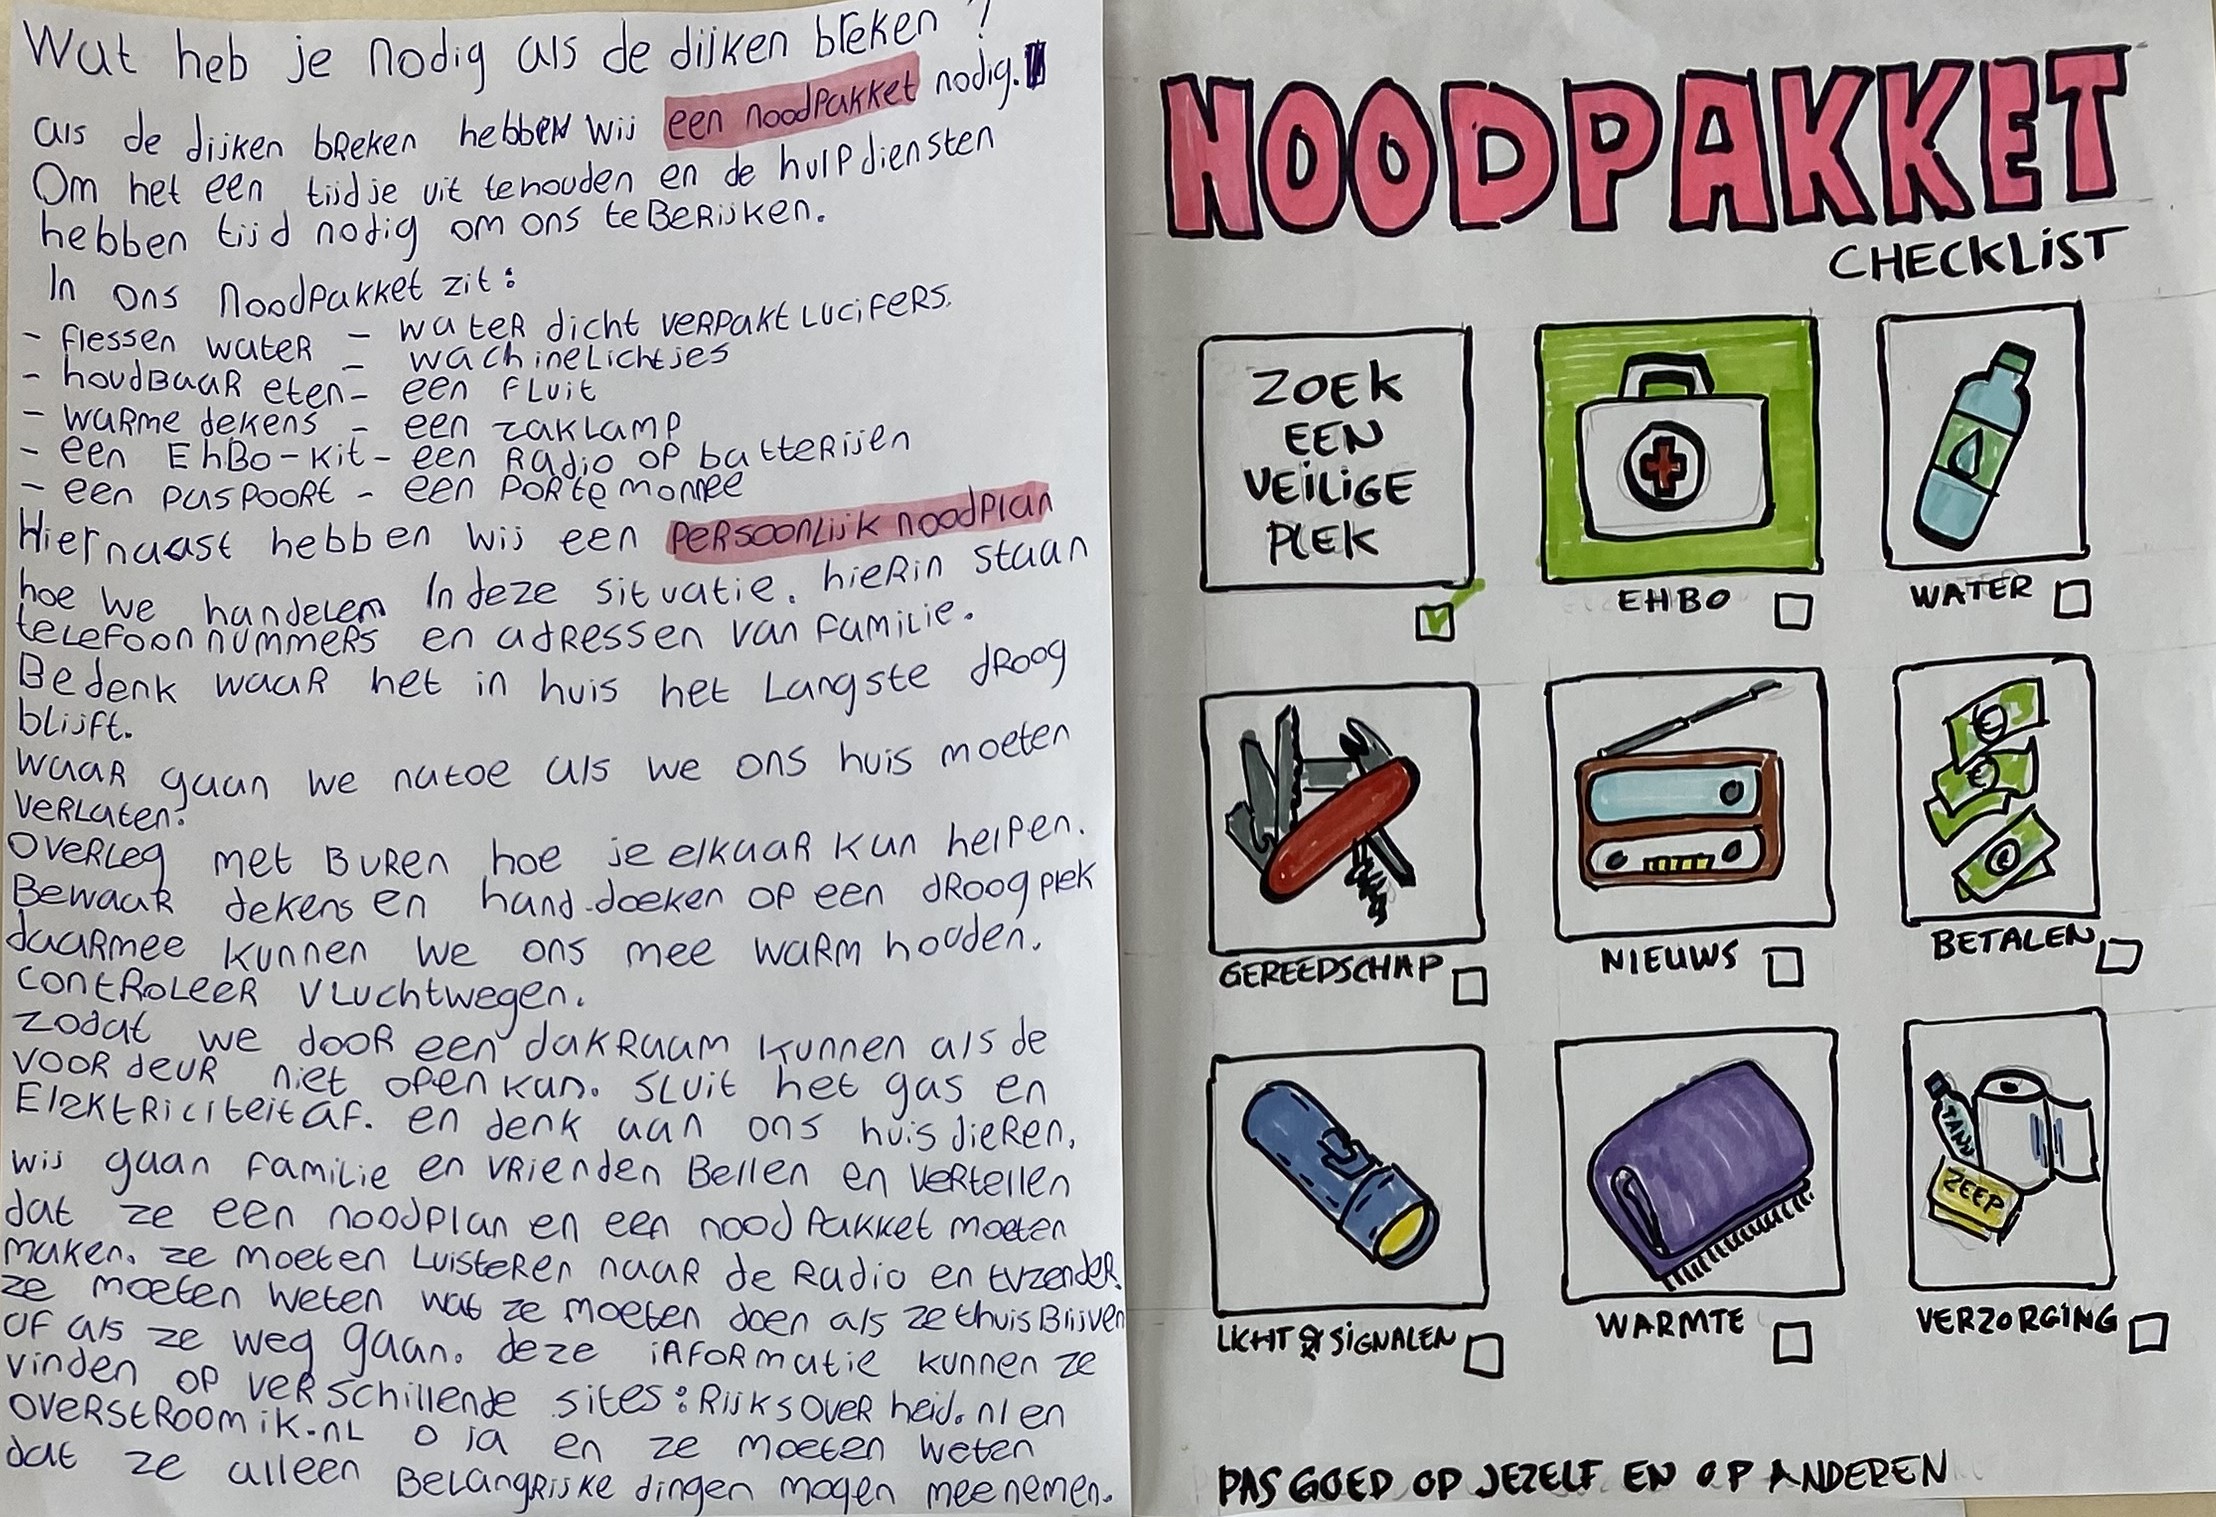 Wat heb je nodig als de dijken breken?
als de dijken breken hebben wij een noodpakket nodig.
Om het een tijdje uit tehouden en de hulpdiensten
hebben tijd nodig om ons te Berijken.
In ons noodpakket zit:
- flessen water - water dicht verpakt lucifers.
- houdbaar eten - wachinelichtjes
- warme dekens - een fluit
- een EHBO-kit - een zaklamp
- een paspoort - een radio op batterijen
- een portemonnee
Hiernaast hebben wij een persoonlijk noodplan
hoe we handelen In deze situatie. hierin staan
telefoonnummers en adressen van familie.
Bedenk waar het in huis het langste droog
blijft.
waar gaan we natoe als we ons huis moeten
verlaten?
overleg met Buren hoe je elkaar kun helpen.
Bewaar dekens en hand-doeken op een droog plek
daarmee kunnen we ons mee warm houden.
controleer vluchtwegen.
zodat we door een dakraam kunnen als de
voordeur niet open kan. sluit het gas en
Elektriciteit af. en denk aan ons huisdieren.
wij gaan familie en vrienden Bellen en vertellen
dat ze een noodplan en een noodpakket moeten
maken. ze moeten luisteren naar de radio en tvzender.
ze moeten weten wat ze moeten doen als ze thuis Blijven
of als ze weg gaan. deze informatie kunnen ze
vinden op verschillende sites: Rijksoverheid.nl en
overstroomik.nl o ja en ze moeten weten
dat ze alleen Belangrijke dingen mogen meenemen.
NOODPAKKET
CHECKLIST
ZOEK
EEN
VEILIGE
PLEK
EHBO
WATER
GEREEDSCHAP
NIEUWS
BETALEN
TAND
ZEEP
LICHT & SIGNALEN
WARMTE
VERZORGING
PAS GOED OP JEZELF EN OP ANDEREN